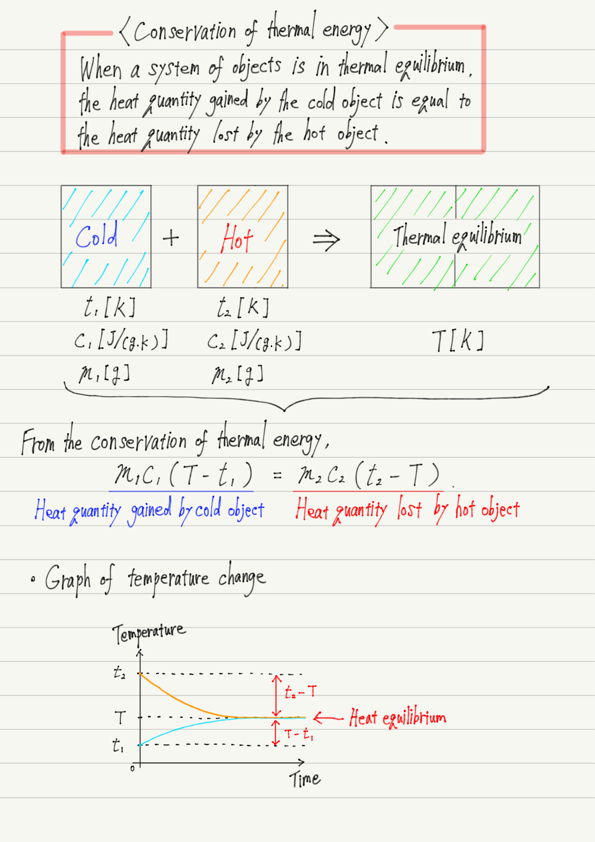 〈Conservation of thermal energy〉
When a system of objects is in thermal equilibrium,
the heat quantity gained by the cold object is equal to
the heat quantity lost by the hot object.
Cold + Hot ⇒ Thermal equilibrium
t₁[k] t₂[k]
C₁[J/(g·k)] C₂[J/(g·k)] T[k]
m₁[g] m₂[g]
From the conservation of thermal energy,
m₁C₁(T-t₁) = m₂C₂(t₂-T).
Heat quantity gained by cold object Heat quantity lost by hot object
• Graph of temperature change
Temperature
t₂
t₂-T
T ← Heat equilibrium
T-t₁
t₁
0
Time